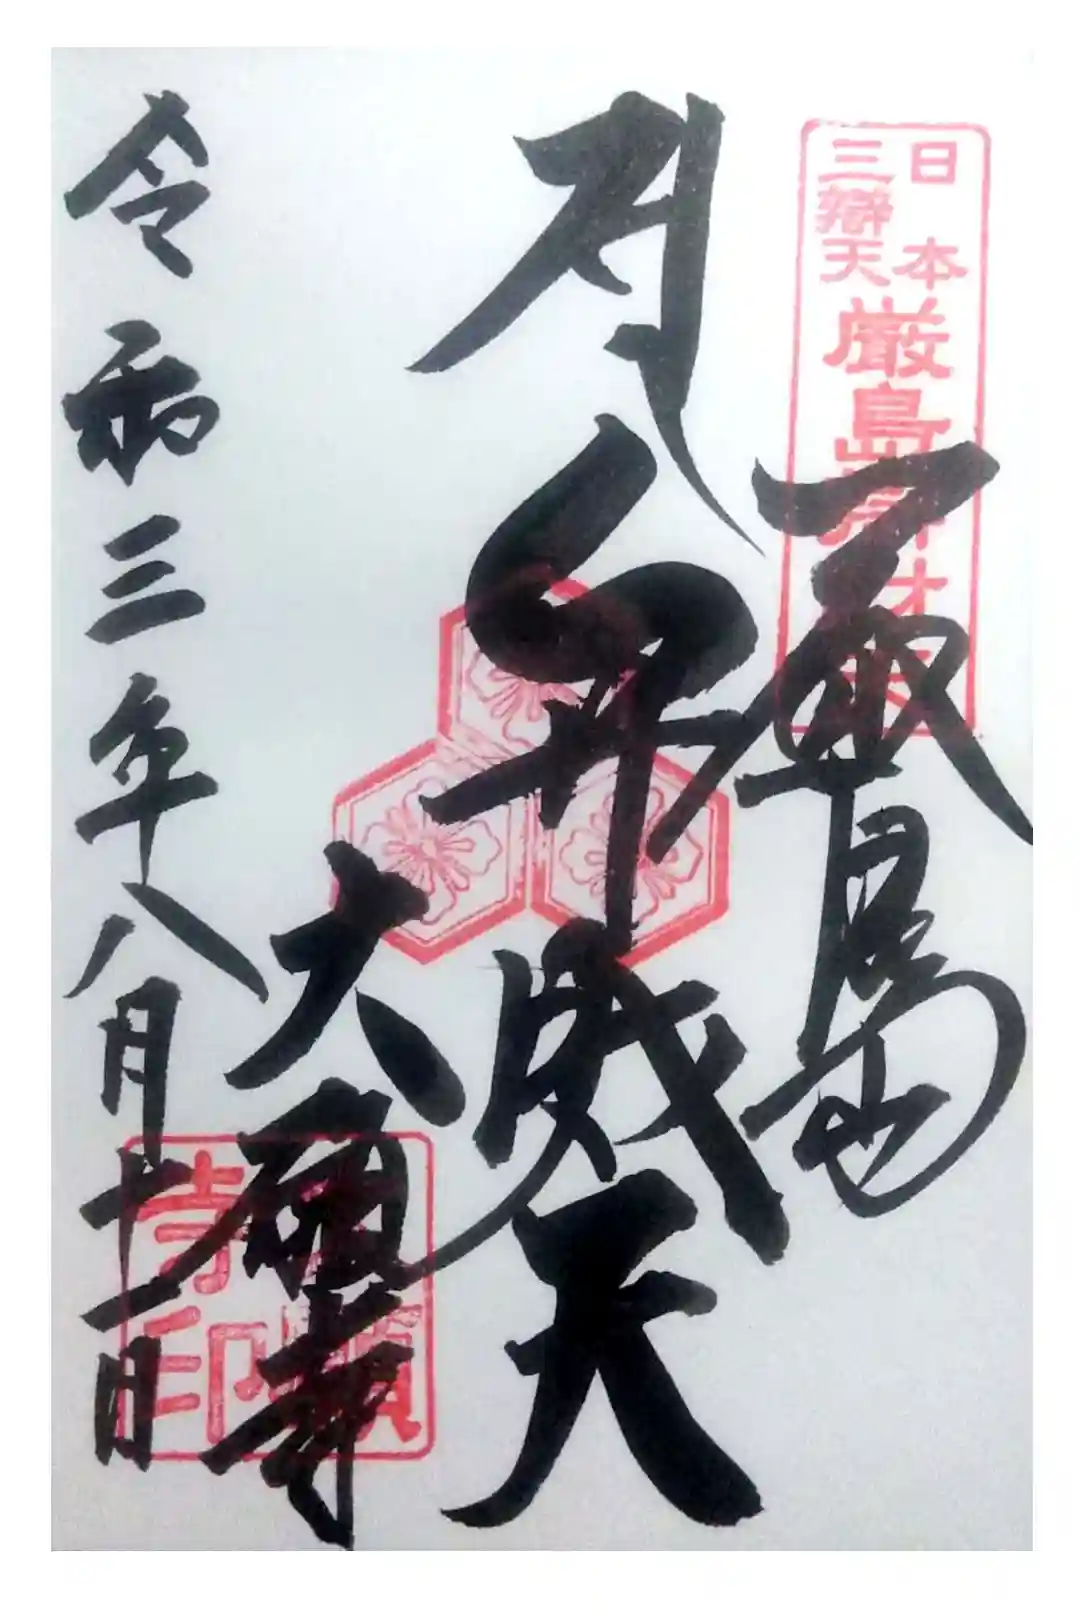 日本
三辯天
厳島辯才天
嚴島
弁財天
大願寺
令和三年八月十一日
大願寺印